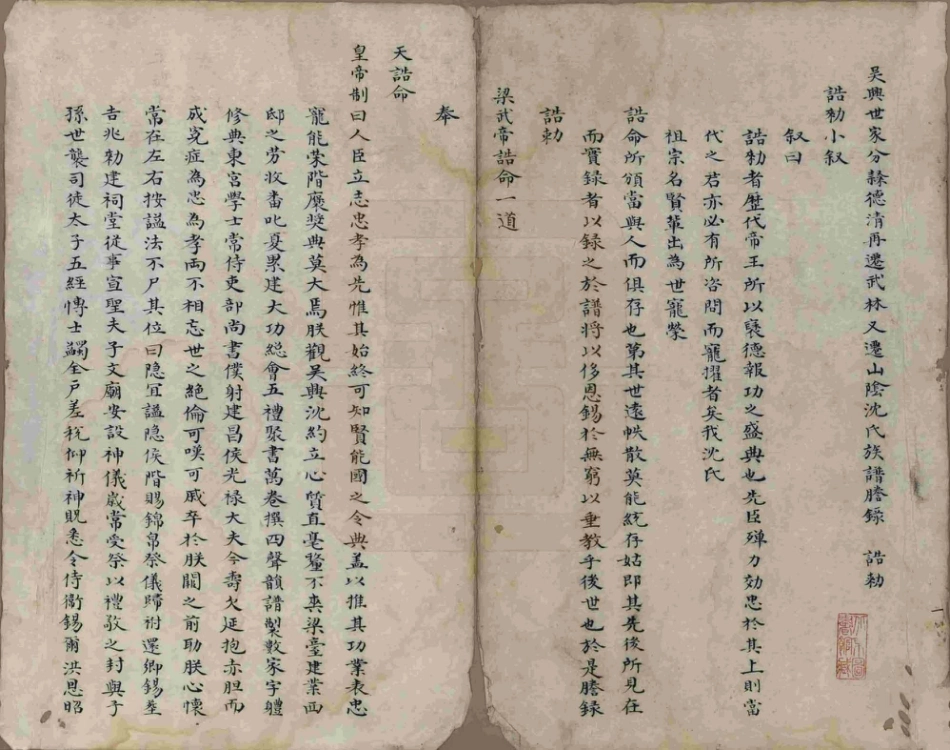 吳興世家分隸德清再遷武林又遷山陰沈氏族譜謄錄 誥勅
誥勅小叙
叙曰
誥勅者歷代帝王所以襃德報功之盛典也先臣殫力効忠於其上則當
代之君亦必有所咨問而寵擢者矣我沈氏
祖宗名賢輩出為世寵榮
誥命所頒當與人而俱存也第其世遠帙散莫能統存姑即其先後所見在
而實錄者以錄之於譜將以侈恩錫於無窮以垂教乎後世也於是謄錄
誥勅
梁武帝誥命一道
奉
天誥命
皇帝制曰人臣立志忠孝為先惟其始終可知賢能國之令典盖以推其功業表忠
寵能榮階襃奨典莫大焉朕觀吳興沈約立心質直毫釐不枼梁臺建業西
邸之劳攸畨叱夏累建大功総會五禮聚書萬卷撰四聲韻譜製數家字軆
修典東宮學士常侍吏部尚書僕射建昌侯光禄大夫今壽欠延抱赤胆而
成完症為忠為孝両不相忘世之絶倫可嘆可戚卒於朕闕之前助朕心懷
常在左右按謚法不尸其位曰隐冝謚隐侯階賜錦帛祭儀歸祔還鄉錫塋
吉兆勅建祠堂從事宣聖夫子文廟安設神儀歲常受祭以禮敬之封與子
孫世襲司徒太子五經博士蠲全戸差税仰祈神貺悉令侍衛錫爾洪恩昭